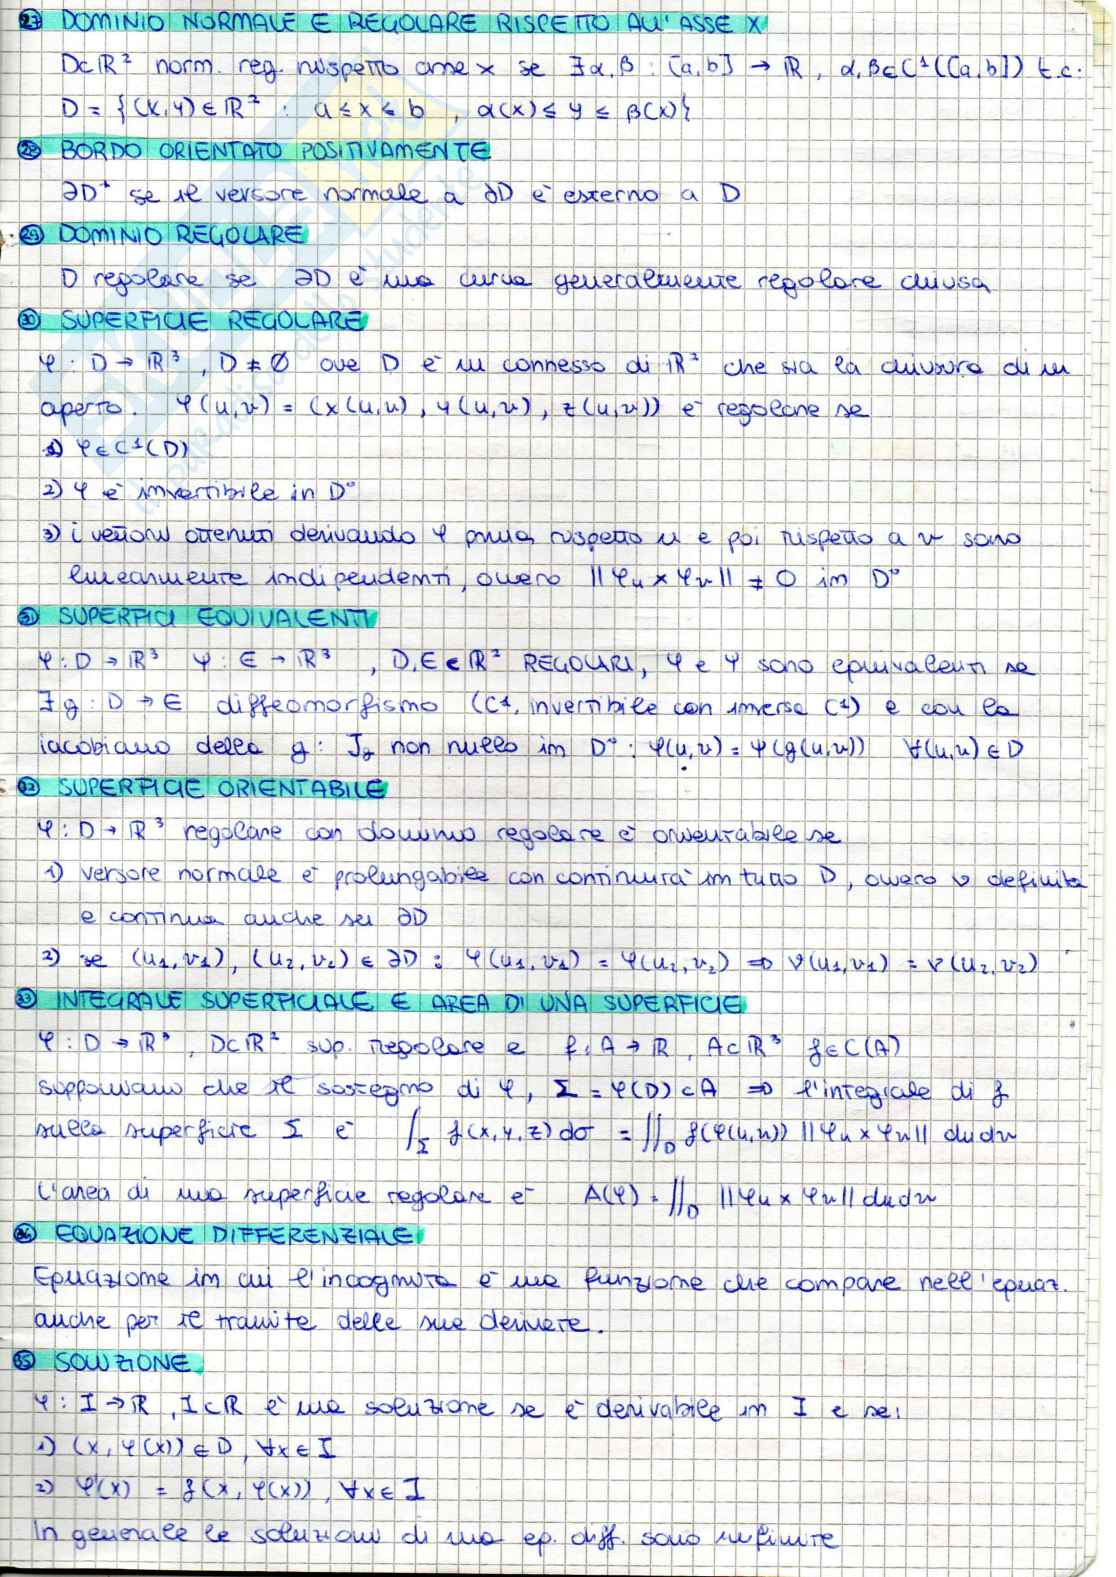 27 DOMINIO NORMALE E REGOLARE RISPETTO ALL'ASSE X
D⊂ℝ² norm. reg. rispetto asse x se ∃α,β : [a,b] → ℝ, α,β∈C¹([a,b]) t.c.
D = {(x,y)∈ℝ² : a≤x≤b , α(x)≤y≤β(x)}
28 BORDO ORIENTATO POSITIVAMENTE
∂D⁺ se il versore normale a ∂D è esterno a D
29 DOMINIO REGOLARE
D regolare se ∂D è una curva generalmente regolare chiusa
30 SUPERFICIE REGOLARE
φ : D → ℝ³, D ≠ ∅ ove D è un connesso di ℝ² che sia la chiusura di un
aperto. φ(u,v) = (x(u,v), y(u,v), z(u,v)) è regolare se
1) φ∈C¹(D)
2) φ è invertibile in D°
3) i vettori ottenuti derivando φ prima rispetto u e poi rispetto a v sono
linearmente indipendenti, ovvero ||φu × φv|| ≠ 0 in D°
31 SUPERFICI EQUIVALENTI
φ : D → ℝ³ ψ : E → ℝ³ , D,E ⊂ ℝ² REGOLARI, φ e ψ sono equivalenti se
∃ g : D → E diffeomorfismo (C¹, invertibile con inversa C¹) e con lo
iacobiano della g : Jg non nullo in D° : φ(u,v) = ψ(g(u,v)) ∀(u,v)∈D
32 SUPERFICIE ORIENTABILE
φ : D → ℝ³ regolare con dominio regolare è orientabile se
1) versore normale è prolungabile con continuità in tutto D, ovvero ν definita
e continua anche su ∂D
2) se (u1,v1), (u2,v2) ∈ ∂D : φ(u1,v1) = φ(u2,v2) ⇒ ν(u1,v1) = ν(u2,v2)
33 INTEGRALE SUPERFICIALE E AREA DI UNA SUPERFICIE
φ : D → ℝ³, D⊂ℝ² sup. regolare e f : A → ℝ, A⊂ℝ³ f∈C(A)
supponiamo che il sostegno di φ, Σ = φ(D) ⊂ A ⇒ l'integrale di f
sulla superficie Σ è ∫Σ f(x,y,z) dσ = ∬D f(φ(u,v)) ||φu × φv|| dudv
L'area di una superficie regolare è A(φ) = ∬D ||φu × φv|| dudv
34 EQUAZIONE DIFFERENZIALE
Equazione in cui l'incognita è una funzione che compare nell'equaz.
anche per il tramite delle sue derivate.
35 SOLUZIONE
φ : I → ℝ, I⊂ℝ è una soluzione se è derivabile in I e se:
1) (x, φ(x)) ∈ D, ∀x∈I
2) φ'(x) = f(x, φ(x)), ∀x∈I
In generale le soluzioni di una eq. diff. sono infinite